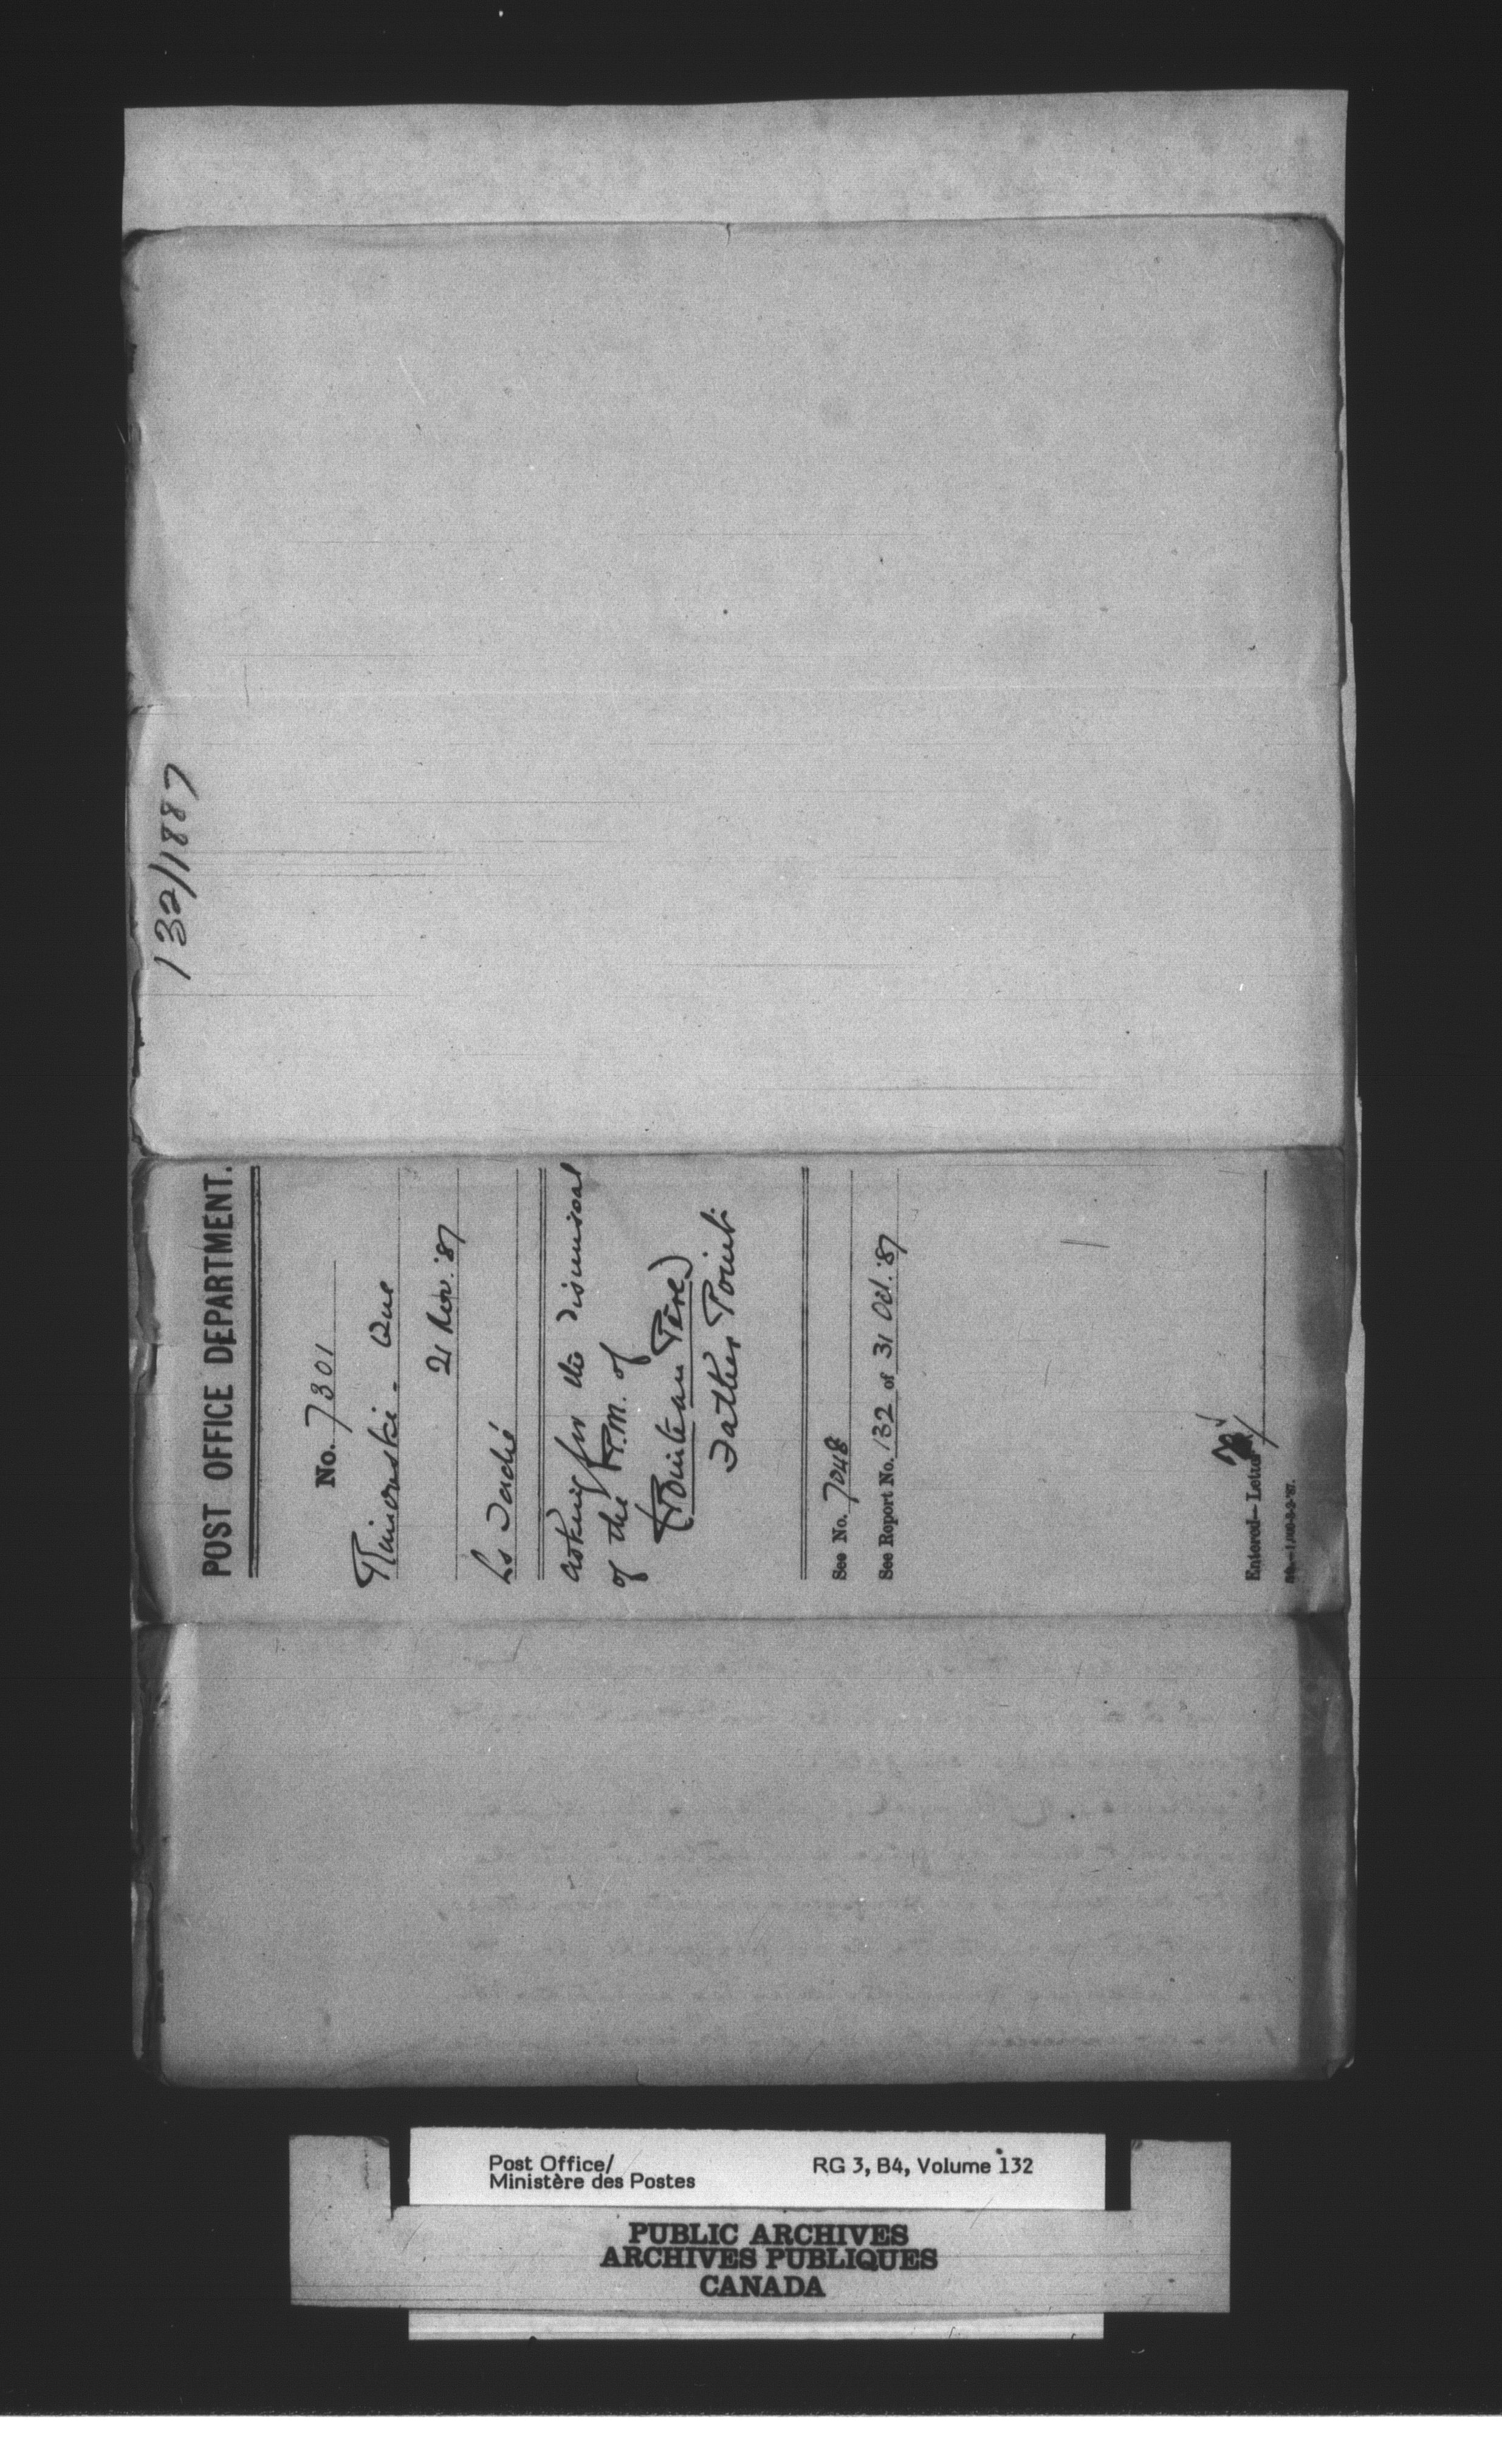 132/1887
POST OFFICE DEPARTMENT.
No. 7301
Rimouski - Que
21 Nov. '87
Ls Taché
asking for the dismissal
of the P.M. of
(Pointe au Père)
Father Point
See No. 7048
See Report No. 132 of 31 Oct. '87
Entered—Letter
Post Office/
Ministère des Postes
RG 3, B4, Volume 132
PUBLIC ARCHIVES
ARCHIVES PUBLIQUES
CANADA